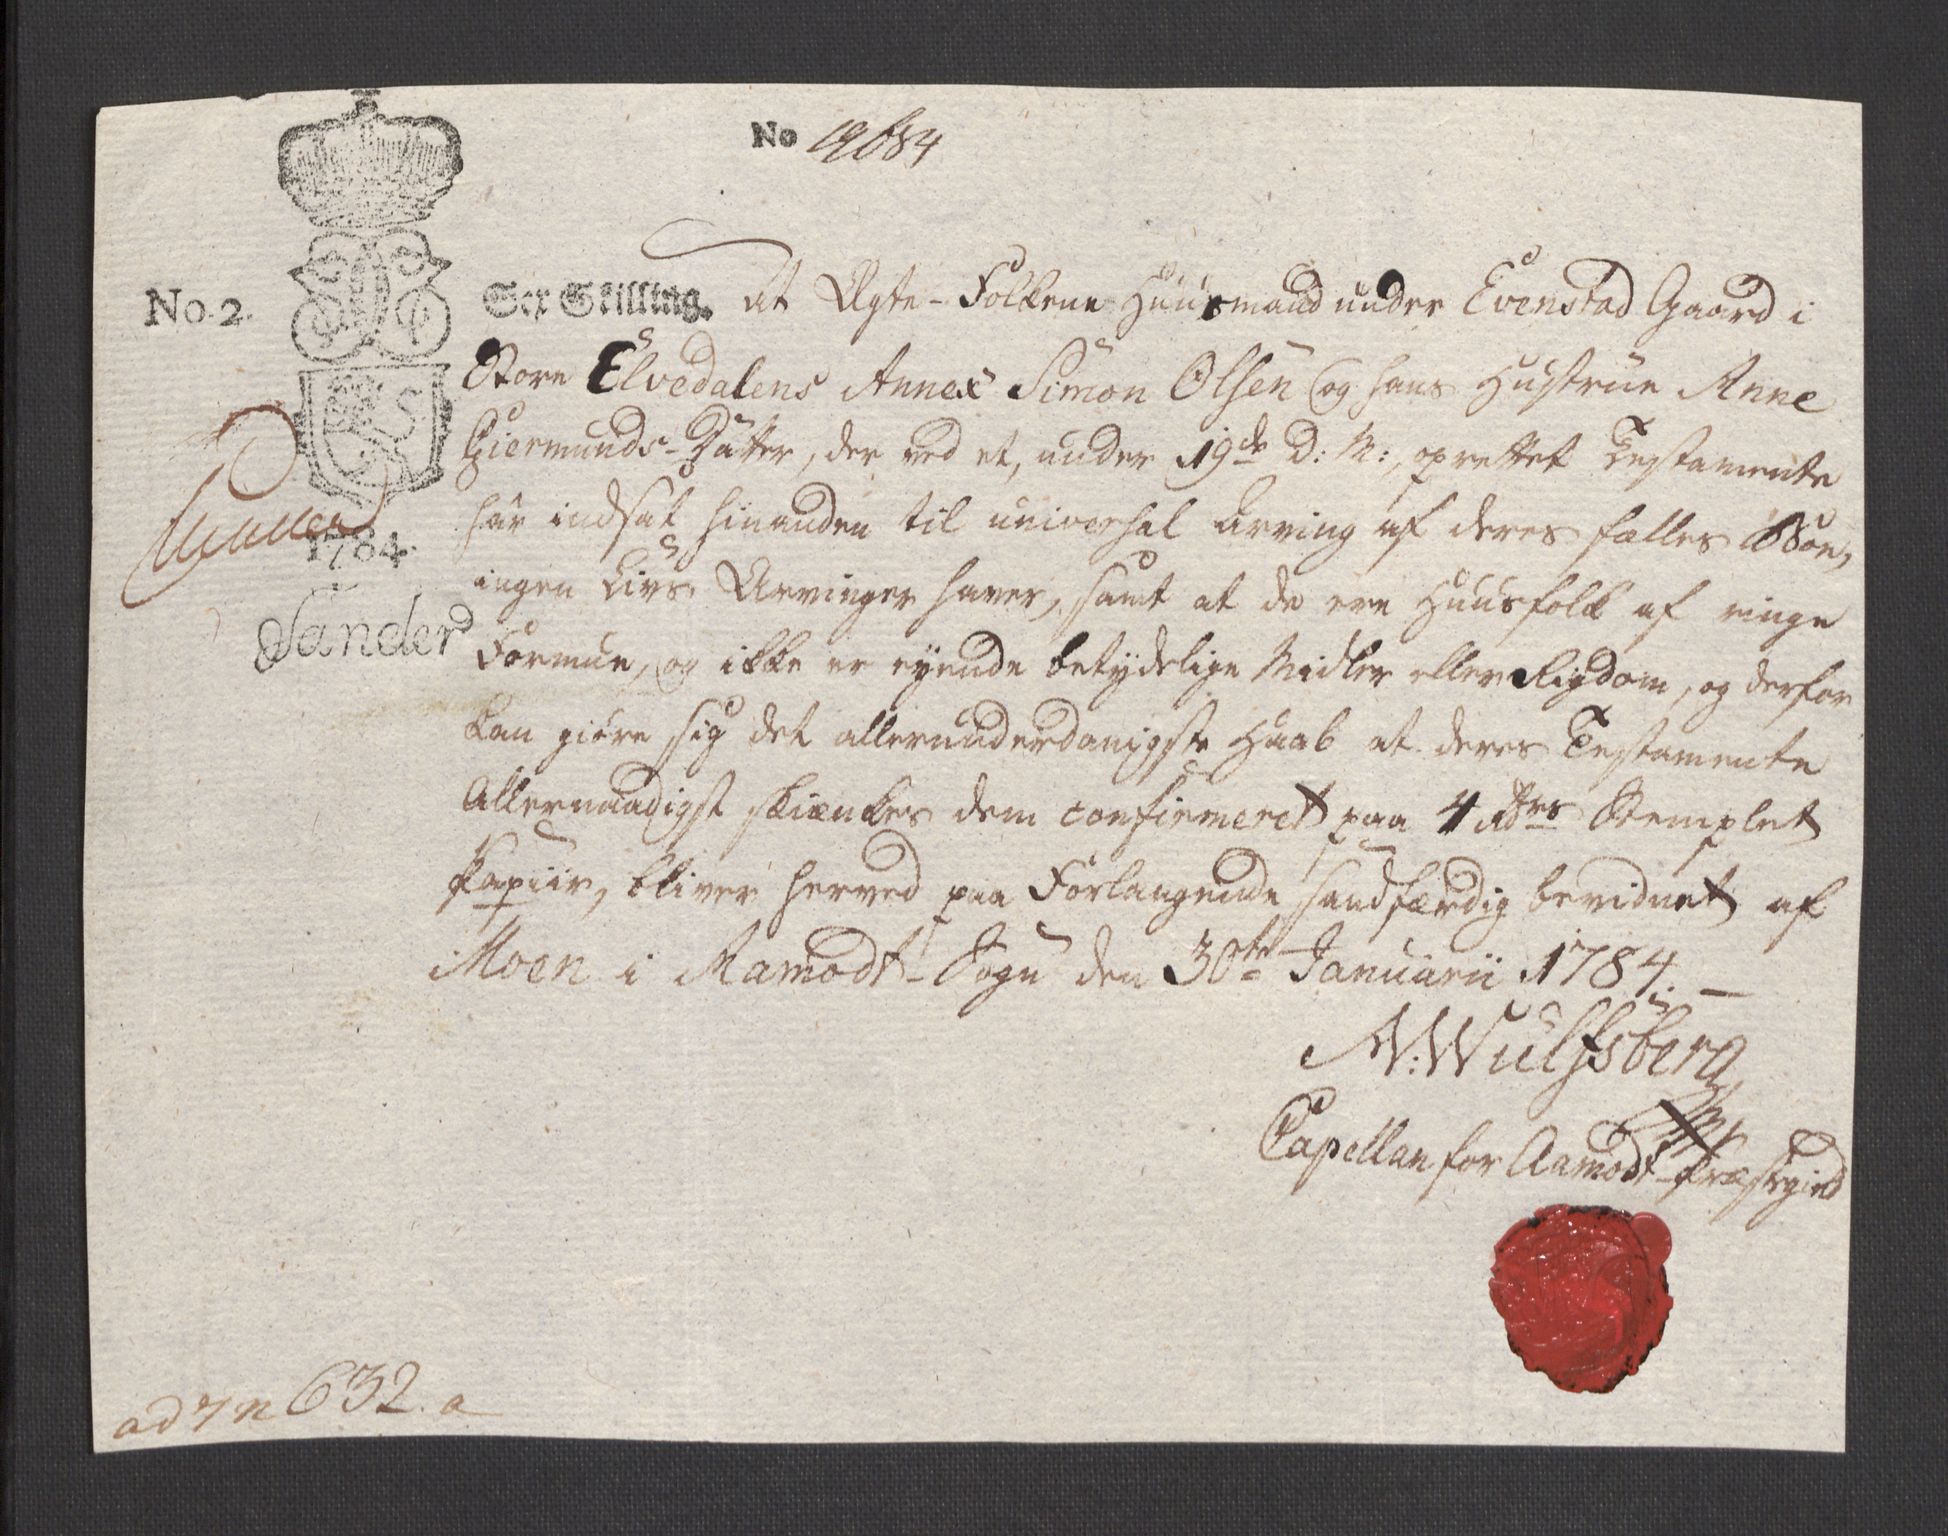 No 19684
No. 2.
Sex Skilling. At Ægte-Folkene Huusmand under Evenstad Gaard i
Store Elvedalens Annex Simon Olsen og hans Hustrue Anne
Giermunds-Datter, der ved et, under 19de D: M:, oprettet Testamente
har indsat hinanden til universal Arving af deres fælles Boe,
ingen Livs Arvinger haver, samt at de ere Huusfolk af ringe
Formue, og ikke er eyende betydelige Midler eller Rigdom, og derfor
kan giøre sig det allerunderdanigste Haab at deres Testamente
Allernaadigst skienkes dem confirmeret paa 4 rdrs Stemplet
Papiir, bliver herved paa Forlangende sandfærdig bevidnet af
Moen i Aamodt-Sogn den 30te Januarii 1784.
1784.
Sander
N: Wulfsberg
Capellan for Aamodt-Præstegield
ad 632. a